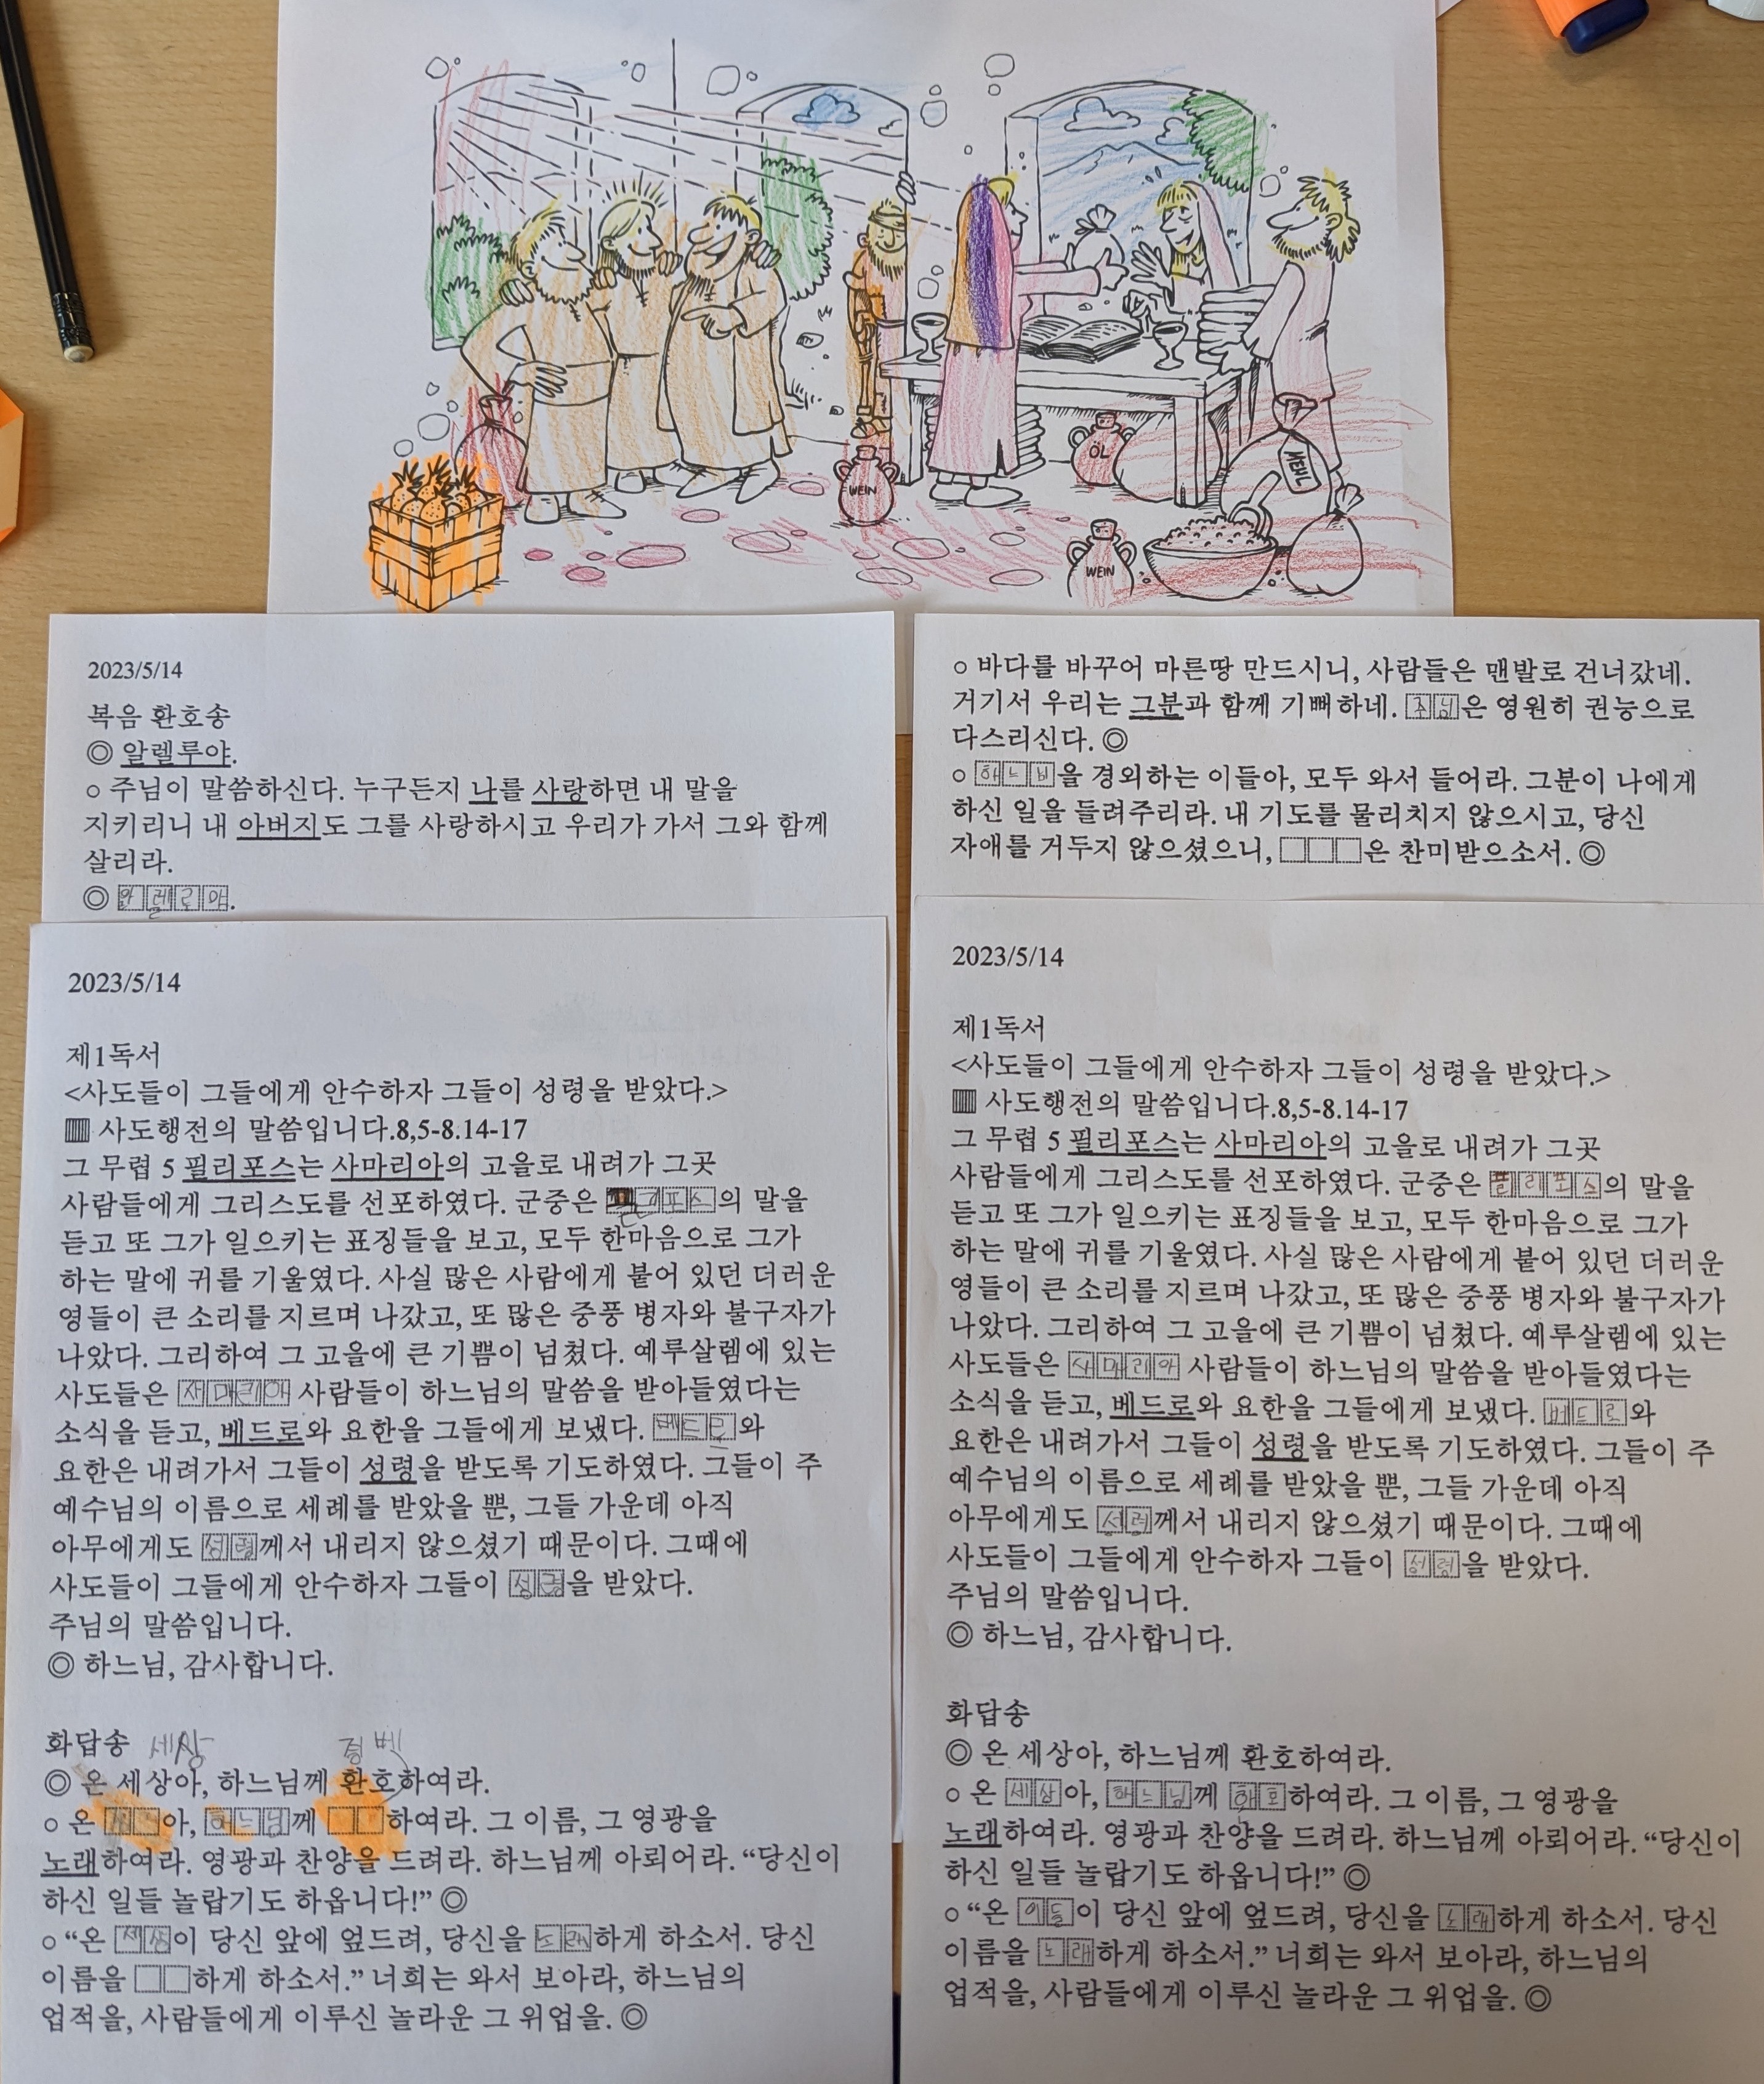 WEIN
ÖL
MEHL
WEIN
2023/5/14
복음 환호송
◎ 알렐루야.
○ 주님이 말씀하신다. 누구든지 나를 사랑하면 내 말을
지키리니 내 아버지도 그를 사랑하시고 우리가 가서 그와 함께
살리라.
◎ 알렐로야.
○ 바다를 바꾸어 마른땅 만드시니, 사람들은 맨발로 건너갔네.
거기서 우리는 그분과 함께 기뻐하네. 주님은 영원히 권능으로
다스리신다. ◎
○ 을 경외하는 이들아, 모두 와서 들어라. 그분이 나에게
하신 일을 들려주리라. 내 기도를 물리치지 않으시고, 당신
자애를 거두지 않으셨으니, □□□은 찬미받으소서. ◎
2023/5/14
제1독서
<사도들이 그들에게 안수하자 그들이 성령을 받았다.>
▥ 사도행전의 말씀입니다.8,5-8.14-17
그 무렵 5 필리포스는 사마리아의 고을로 내려가 그곳
사람들에게 그리스도를 선포하였다. 군중은 포스의 말을
듣고 또 그가 일으키는 표징들을 보고, 모두 한마음으로 그가
하는 말에 귀를 기울였다. 사실 많은 사람에게 붙어 있던 더러운
영들이 큰 소리를 지르며 나갔고, 또 많은 중풍 병자와 불구자가
나았다. 그리하여 그 고을에 큰 기쁨이 넘쳤다. 예루살렘에 있는
사도들은 사람들이 하느님의 말씀을 받아들였다는
소식을 듣고, 베드로와 요한을 그들에게 보냈다. 베드로와
요한은 내려가서 그들이 성령을 받도록 기도하였다. 그들이 주
예수님의 이름으로 세례를 받았을 뿐, 그들 가운데 아직
아무에게도 성령께서 내리지 않으셨기 때문이다. 그때에
사도들이 그들에게 안수하자 그들이 성령을 받았다.
주님의 말씀입니다.
◎ 하느님, 감사합니다.
화답송 세상
◎ 온 세상아, 하느님께 환호하여라.
○ 온 아, 하느님께 □□하여라. 그 이름, 그 영광을
노래하여라. 영광과 찬양을 드려라. 하느님께 아뢰어라. “당신이
하신 일들 놀랍기도 하옵니다!” ◎
○ “온 세상이 당신 앞에 엎드려, 당신을 노래하게 하소서. 당신
이름을 □□하게 하소서.” 너희는 와서 보아라, 하느님의
업적을, 사람들에게 이루신 놀라운 그 위업을. ◎
2023/5/14
제1독서
<사도들이 그들에게 안수하자 그들이 성령을 받았다.>
▥ 사도행전의 말씀입니다.8,5-8.14-17
그 무렵 5 필리포스는 사마리아의 고을로 내려가 그곳
사람들에게 그리스도를 선포하였다. 군중은 필리포스의 말을
듣고 또 그가 일으키는 표징들을 보고, 모두 한마음으로 그가
하는 말에 귀를 기울였다. 사실 많은 사람에게 붙어 있던 더러운
영들이 큰 소리를 지르며 나갔고, 또 많은 중풍 병자와 불구자가
나았다. 그리하여 그 고을에 큰 기쁨이 넘쳤다. 예루살렘에 있는
사도들은 사마리아 사람들이 하느님의 말씀을 받아들였다는
소식을 듣고, 베드로와 요한을 그들에게 보냈다. 베드로와
요한은 내려가서 그들이 성령을 받도록 기도하였다. 그들이 주
예수님의 이름으로 세례를 받았을 뿐, 그들 가운데 아직
아무에게도 성령께서 내리지 않으셨기 때문이다. 그때에
사도들이 그들에게 안수하자 그들이 성령을 받았다.
주님의 말씀입니다.
◎ 하느님, 감사합니다.
화답송
◎ 온 세상아, 하느님께 환호하여라.
○ 온 세상아, 하느님께 환호하여라. 그 이름, 그 영광을
노래하여라. 영광과 찬양을 드려라. 하느님께 아뢰어라. “당신이
하신 일들 놀랍기도 하옵니다!” ◎
○ “온 이들이 당신 앞에 엎드려, 당신을 노래하게 하소서. 당신
이름을 노래하게 하소서.” 너희는 와서 보아라, 하느님의
업적을, 사람들에게 이루신 놀라운 그 위업을. ◎